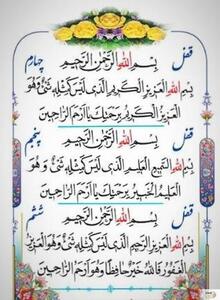 قفل چهارم
بِسْمِ اللهِ الرَّحْمٰنِ الرَّحِيْمِ
بِسْمِ اللهِ الْعَزِيْزِ الْكَرِيْمِ الَّذِى لَيْسَ كَمِثْلِهٖ شَىْءٌ وَّهُوَ
الْعَزِيْزُ الْكَرِيْمُ بِرَحْمَتِكَ يَا اَرْحَمَ الرَّاحِمِيْنَ
قفل پنجم
بِسْمِ اللهِ الرَّحْمٰنِ الرَّحِيْمِ
بِسْمِ اللهِ السَّمِيْعِ الْعَلِيْمِ الَّذِى لَيْسَ كَمِثْلِهٖ شَىْءٌ وَّهُوَ
الْعَلِيْمُ الْخَبِيْرُ بِرَحْمَتِكَ يَا اَرْحَمَ الرَّاحِمِيْنَ
قفل ششم
بِسْمِ اللهِ الرَّحْمٰنِ الرَّحِيْمِ
بِسْمِ اللهِ الْعَزِيْزِ الرَّحِيْمِ الَّذِى لَيْسَ كَمِثْلِهٖ شَىْءٌ وَّهُوَ الْعَزِيْزُ
الْغَفُوْرُ فَاللهُ خَيْرٌ حَافِظًا وَّهُوَ اَرْحَمُ الرَّاحِمِيْنَ